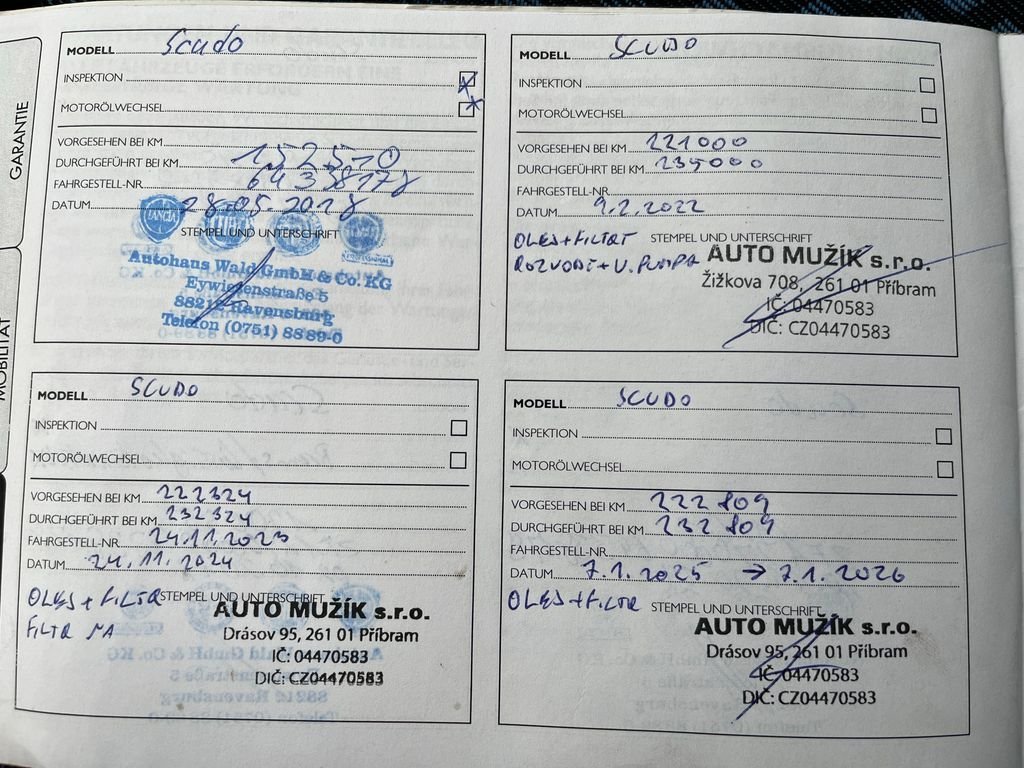 GARANTIE
MOBILITÄT
MODELL Scudo
INSPEKTION
MOTORÖLWECHSEL
VORGESEHEN BEI KM
DURCHGEFÜHRT BEI KM 152570
FAHRGESTELL-NR. 64338178
DATUM 28.05.2018
LANCIA
PROFESSIONAL
STEMPEL UND UNTERSCHRIFT
Autohaus Wald GmbH & Co. KG
Eywiesenstraße 5
88212 Ravensburg
Telefon (0751) 8889-0
MODELL SCUDO
INSPEKTION
MOTORÖLWECHSEL
VORGESEHEN BEI KM 221000
DURCHGEFÜHRT BEI KM 235000
FAHRGESTELL-NR.
DATUM 9.2.2022
OLEJ + FILTRY STEMPEL UND UNTERSCHRIFT
ROZVODY + V. PUMPA AUTO MUŽÍK s.r.o.
Žižkova 708, 261 01 Příbram
IČ: 04470583
DIČ: CZ04470583
MODELL SCUDO
INSPEKTION
MOTORÖLWECHSEL
VORGESEHEN BEI KM 222324
DURCHGEFÜHRT BEI KM 232324
FAHRGESTELL-NR. 24.11.2023
DATUM 24.11.2024
OLEJ + FILTR STEMPEL UND UNTERSCHRIFT
FILTR NA AUTO MUŽÍK s.r.o.
Drásov 95, 261 01 Příbram
IČ: 04470583
DIČ: CZ04470583
MODELL SCUDO
INSPEKTION
MOTORÖLWECHSEL
VORGESEHEN BEI KM 222809
DURCHGEFÜHRT BEI KM 232809
FAHRGESTELL-NR.
DATUM 7.1.2025 → 7.1.2026
OLEJ + FILTR STEMPEL UND UNTERSCHRIFT
AUTO MUŽÍK s.r.o.
Drásov 95, 261 01 Příbram
IČ: 04470583
DIČ: CZ04470583